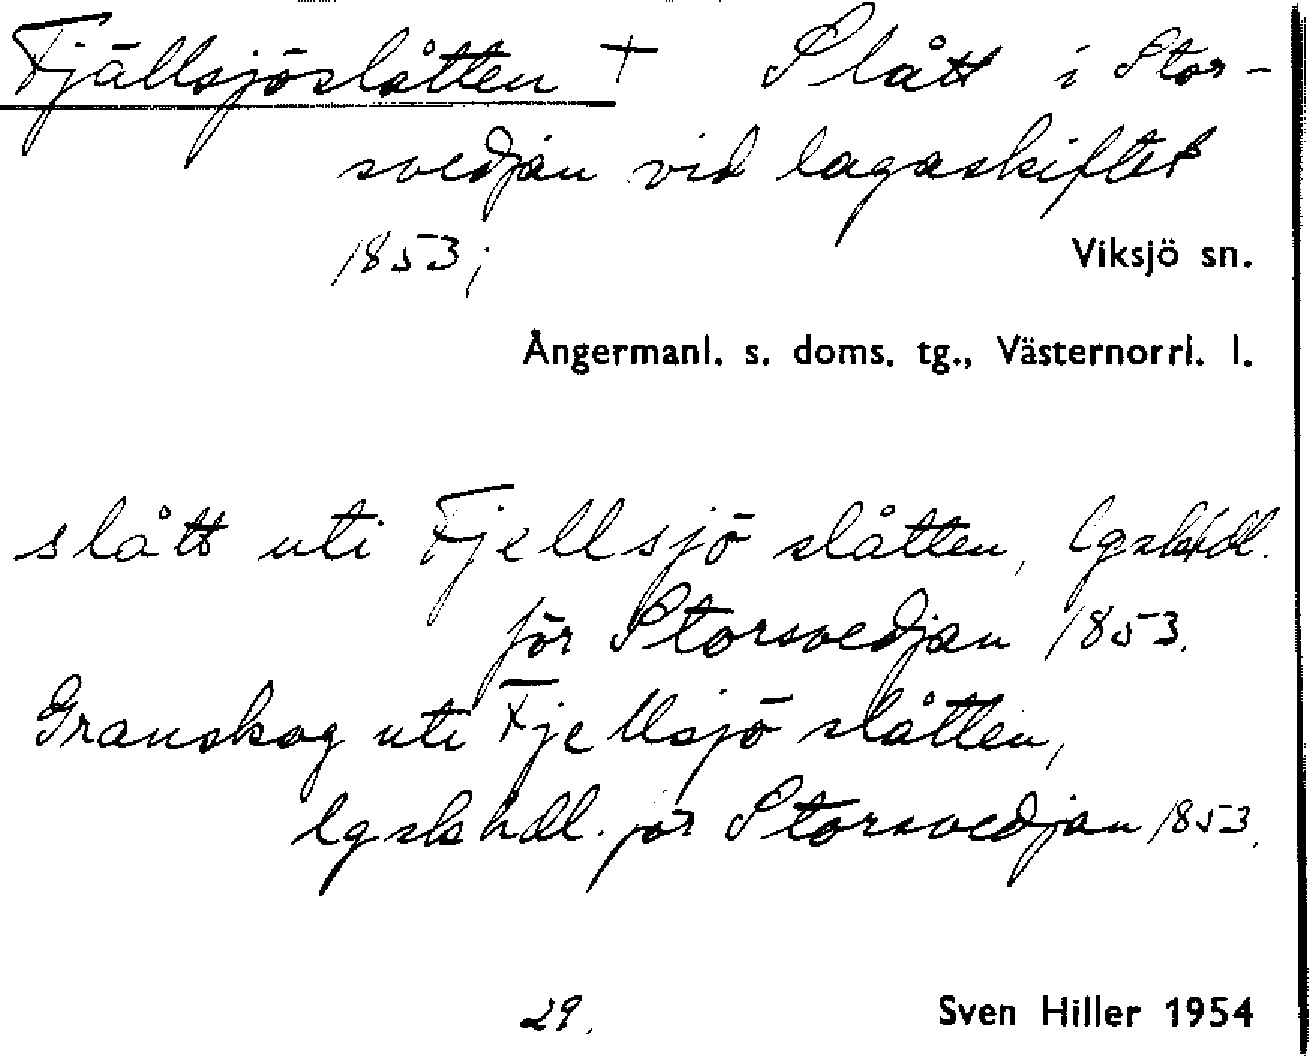 Fjällsjöslåtten + Slått i Stor-
svedjan vid lagaskiftet
1853;
Viksjö sn.
Ångermanl. s. doms. tg., Västernorrl. l.
slått uti Fjellsjö slåtten, lgskhdl.
för Storsvedjan 1853.
Granskog uti Fjellsjö slåtten,
lgskhdl. för Storsvedjan 1853.
29.
Sven Hiller 1954